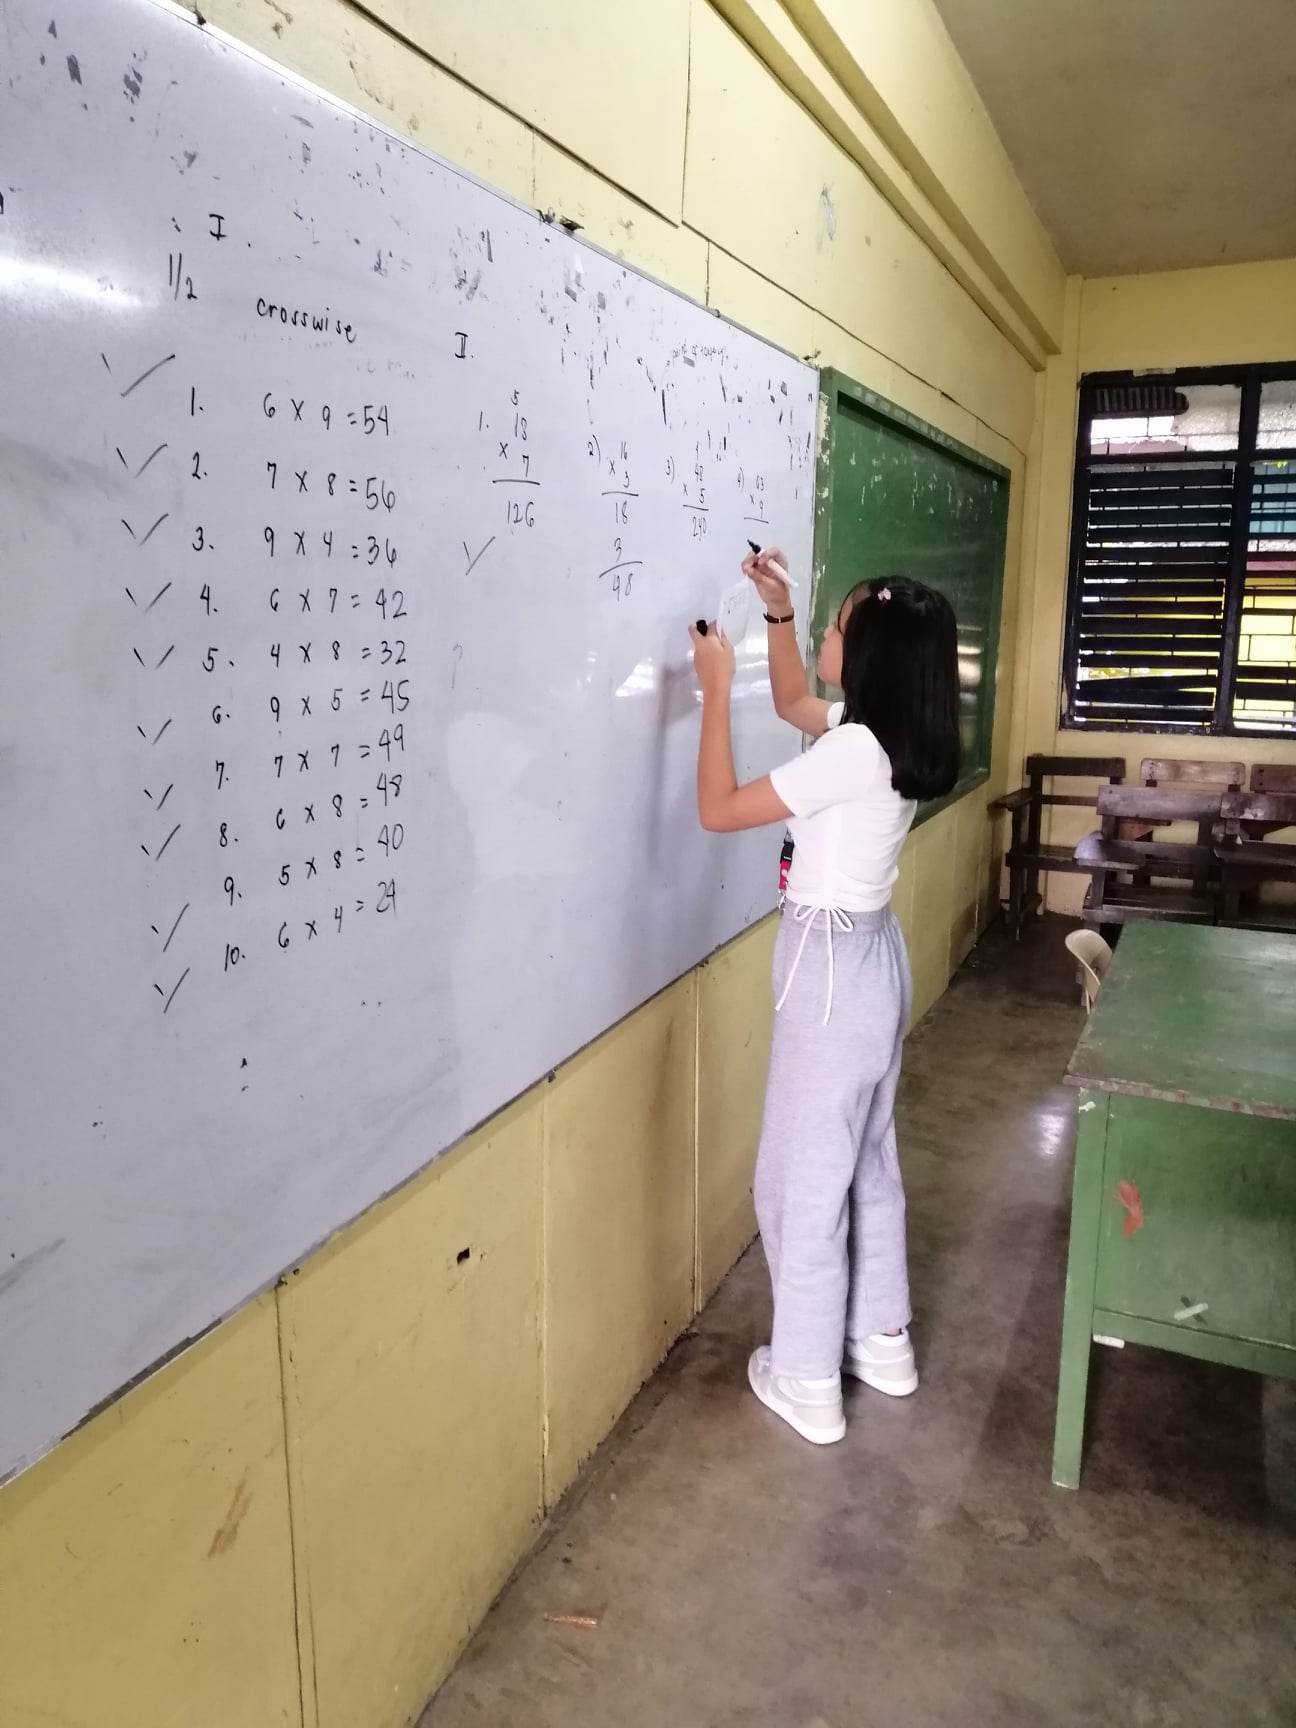 I.
1/2 crosswise
1. 6 x 9 = 54
2. 7 x 8 = 56
3. 9 x 4 = 36
4. 6 x 7 = 42
5. 4 x 8 = 32
6. 9 x 5 = 45
7. 7 x 7 = 49
8. 6 x 8 = 48
9. 5 x 8 = 40
10. 6 x 4 = 24
II.
5
1. 18
x 7
126
2) 16
x 3
18
3
48
3) 48
x 5
240
4) 63
x 9